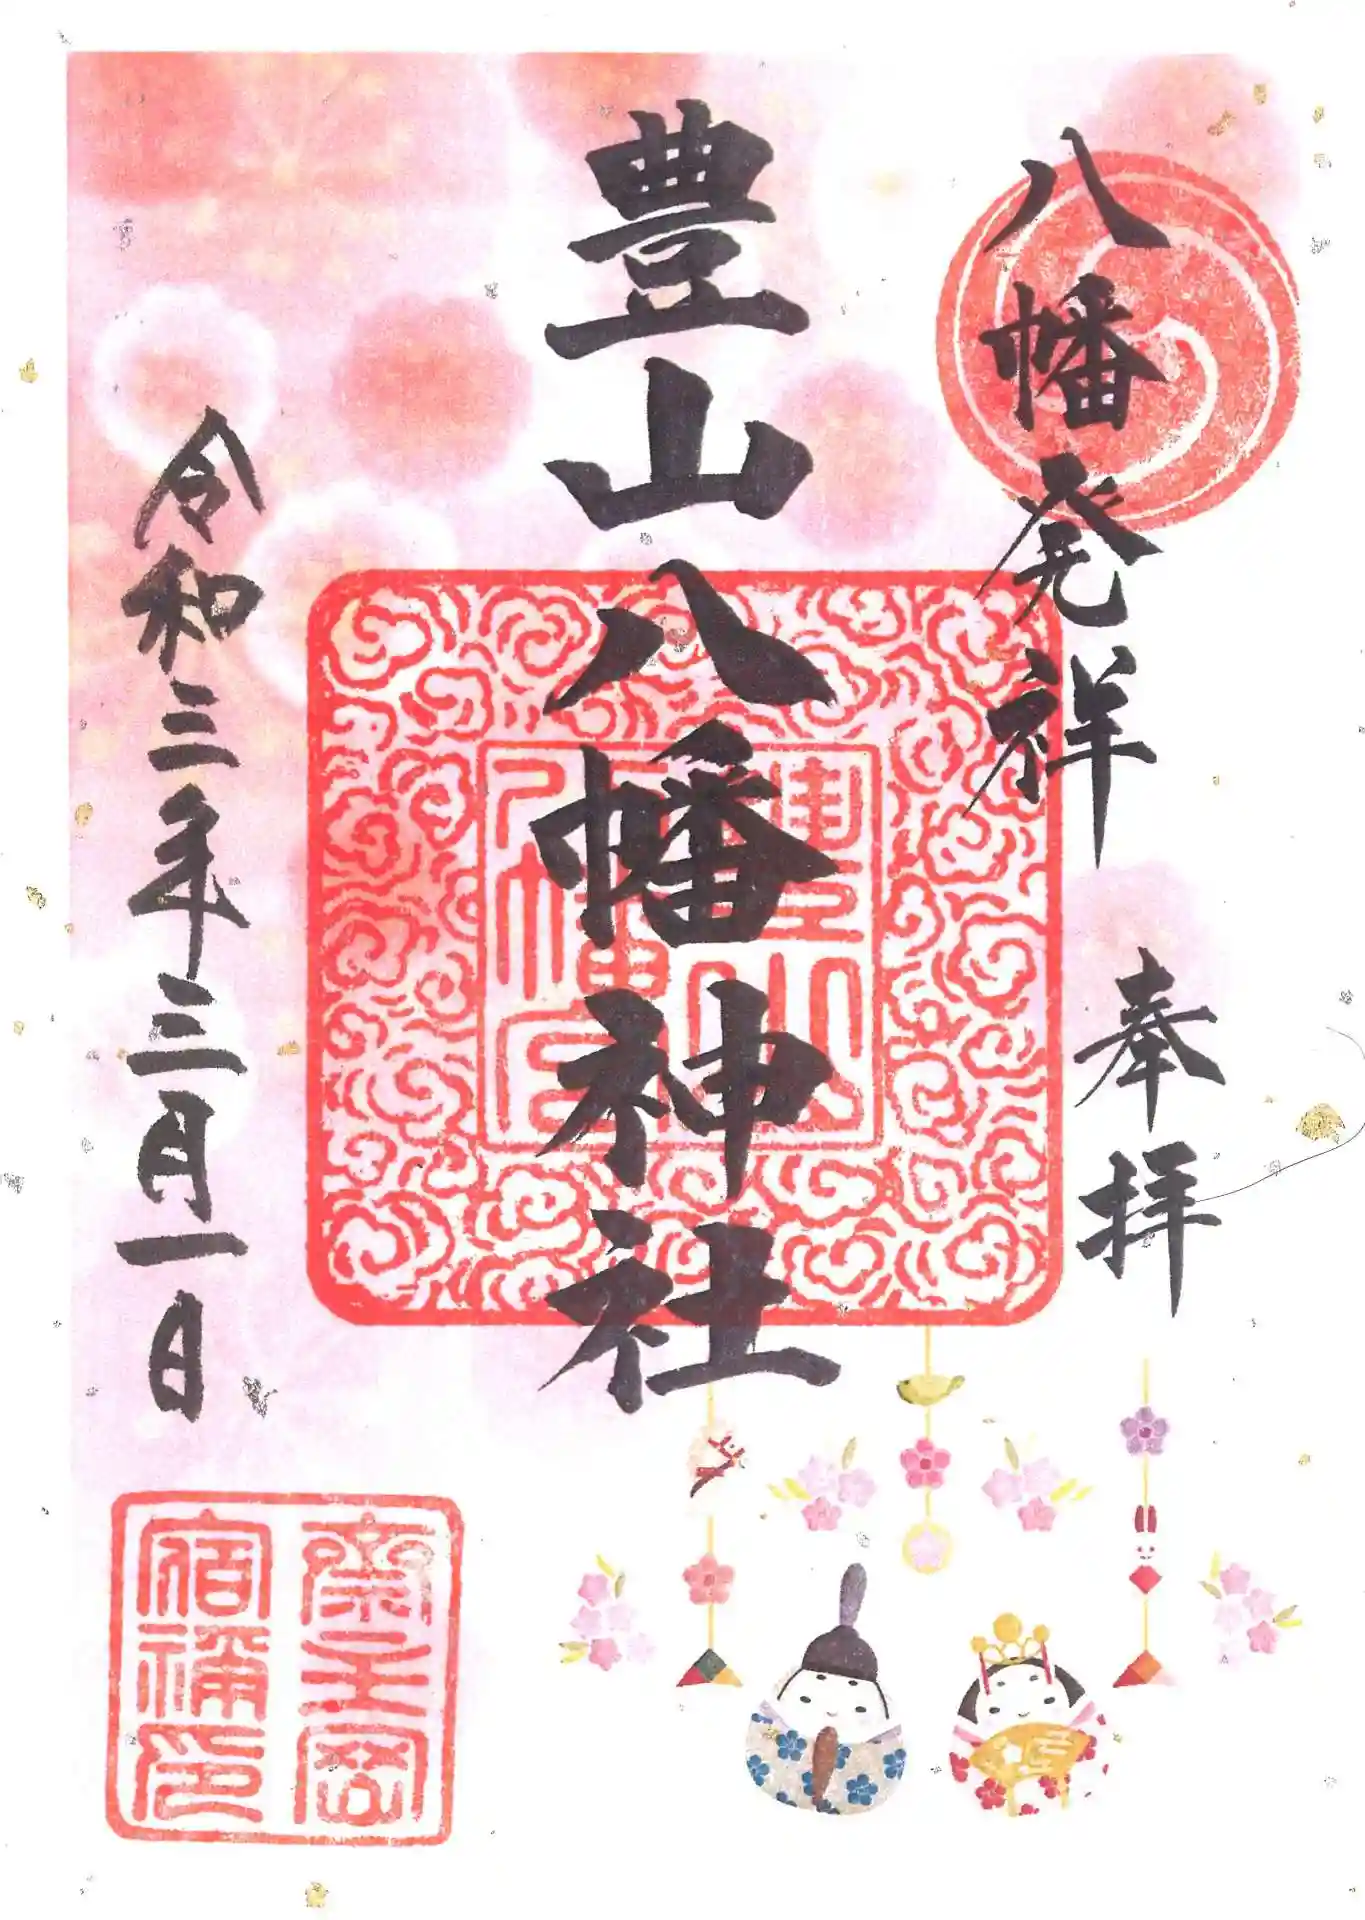 八幡発祥
奉拝
豊山八幡神社
豊山
八幡宮
令和三年三月一日